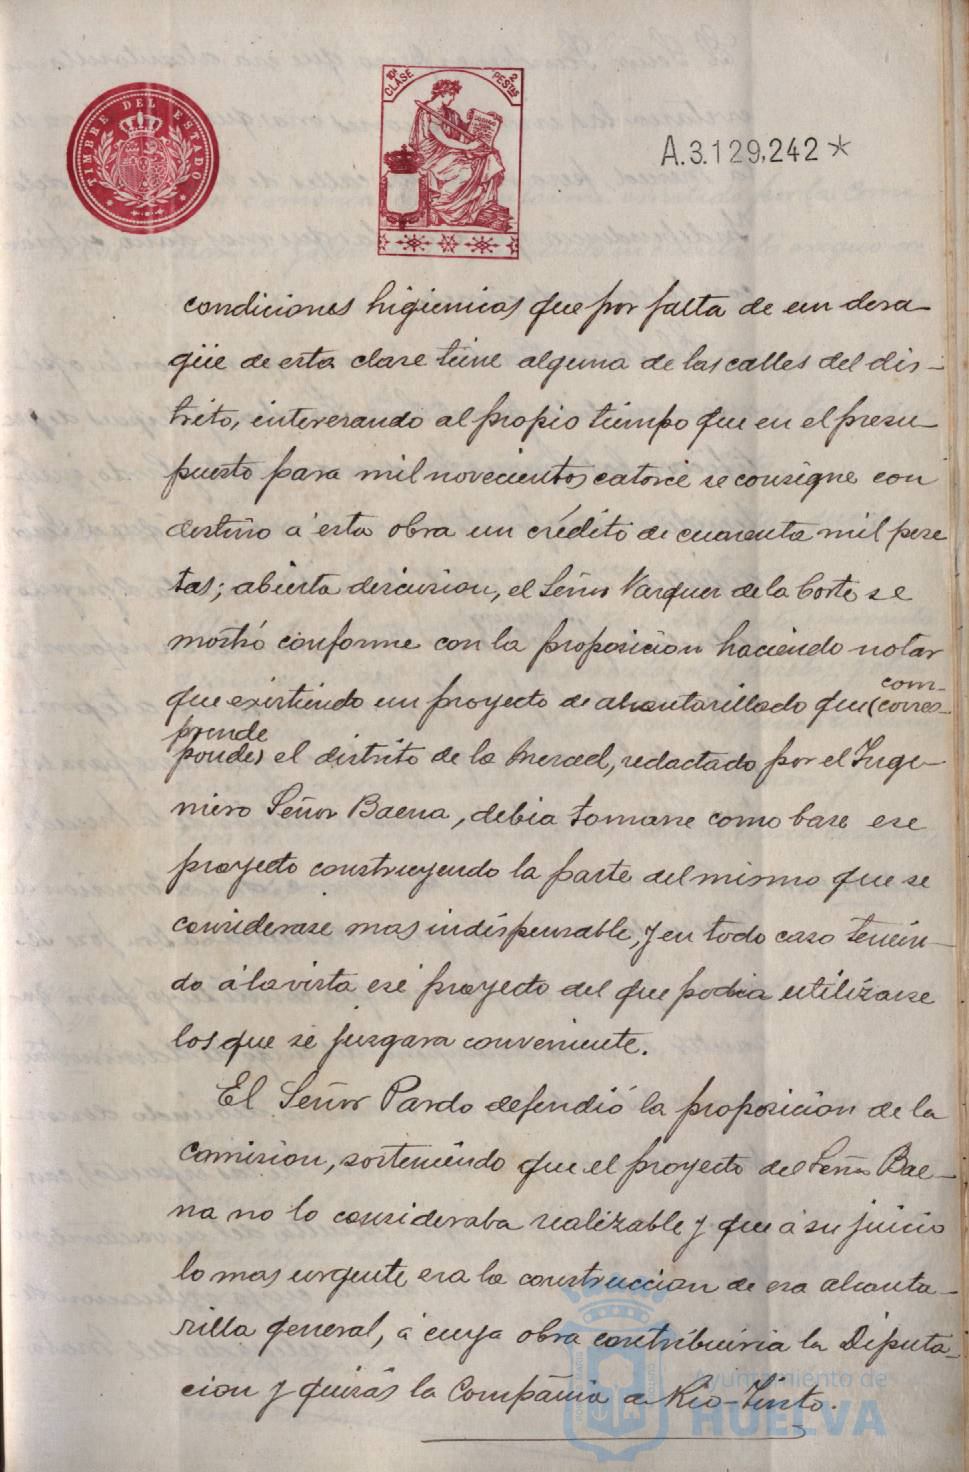 TIMBRE DEL ESTADO
10ª CLASE
2 PESTAS
A.3.129,242*
condiciones higienicas que por falta de un desa-
güe de esta clase tiene alguna de las calles del dis-
trito, interesando al propio tiempo que en el presu-
puesto para mil novecientos catorce se consigne con
destino á esta obra un crédito de cuarenta mil pese
tas; abierta discusion, el Señor Vazquez de la Corte se
mostró conforme con la proposicion haciendo notar
que existiendo un proyecto de alcantarillado que (corres-
com-
prende
ponde) el distrito de la Merced, redactado por el Inge-
niero Señor Baena, debia tomarse como base ese
proyecto construyendo la parte del mismo que se
considerase mas indispensable, y en todo caso tenien-
do á la vista ese proyecto del que podia utilizarse
los que se juzgara conveniente.
El Señor Pardo defendió la proposicion de la
Comision, sosteniendo que el proyecto del Señor Bae-
na no lo consideraba realizable y que á su juicio
lo mas urgente era la construccion de esa alcanta-
rilla general, á cuya obra contribuiria la Diputa-
cion y quizás la Compañia de Rio-Tinto.
Ayuntamiento de
HUELVA